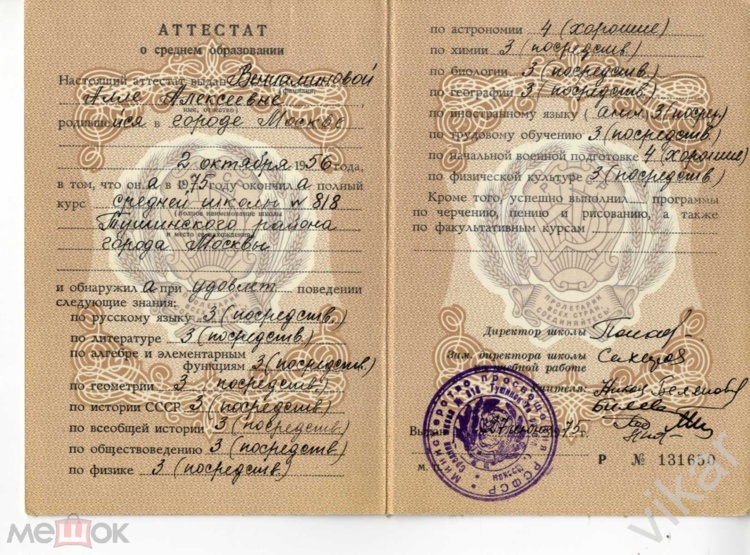 АТТЕСТАТ
о среднем образовании
Настоящий аттестат выдан Вениаминовой
(фамилия)
Алле Алексеевне
(имя, отчество)
родившейся в городе Москве
2 октября 1956 года,
в том, что она в 1975 году окончила полный
курс средней школы № 818
(полное наименование школы
Тушинского района
и место нахождения)
города Москвы
и обнаружила при удовлет. поведении
следующие знания:
по русскому языку 3 (посредств.)
по литературе 3 (посредств.)
по алгебре и элементарным
функциям 3 (посредств.)
по геометрии 3 посредств.)
по истории СССР 3 (посредств.)
по всеобщей истории 3 (посредств.)
по обществоведению 3 (посредств.)
по физике 3 (посредств.)
по астрономии 4 (хорошие)
по химии 3 (посредств.)
по биологии 3 (посредств.)
по географии 3 (посредств.)
по иностранному языку (англ. 3 (посред.
по трудовому обучению 3 (посредств.)
по начальной военной подготовке 4 (хорошие)
по физической культуре 3 (посредств.)
Кроме того, успешно выполнил программы
по черчению, пению и рисованию, а также
по факультативным курсам
ПРОЛЕТАРИИ
ВСЕХ СТРАН,
СОЕДИНЯЙТЕСЬ
Директор школы
Зам. директора школы
по учебной работе
Учителя:
Выдан 1975 г.
М.
Министерство просвещения РСФСР
Москвы
Р № 131650
МЕШОК
vikar